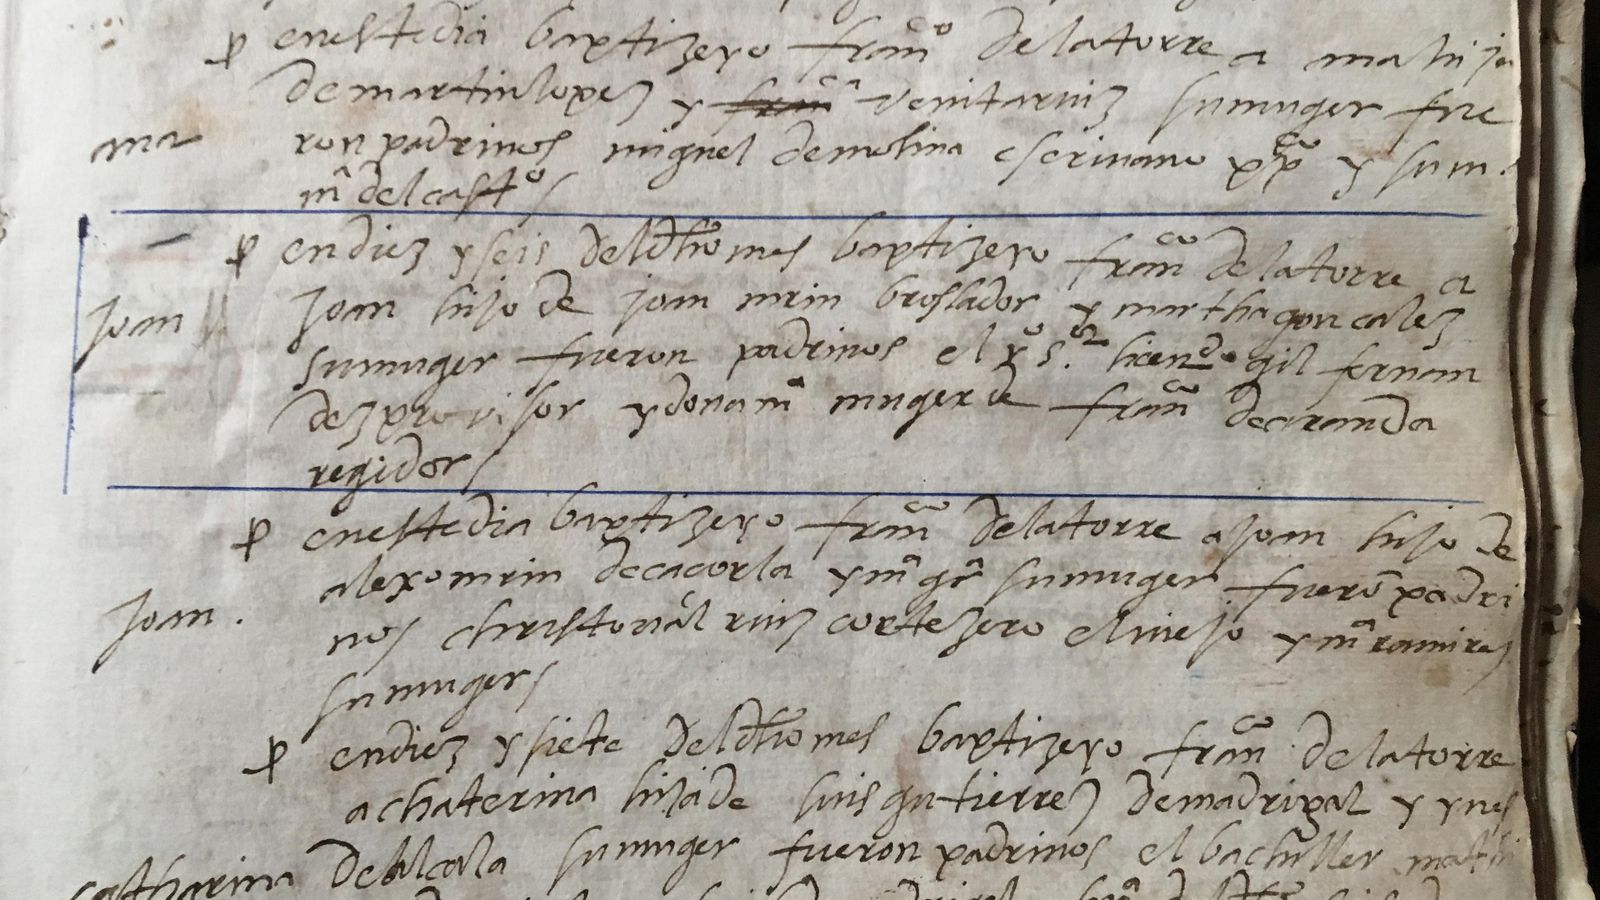 en este dia baptize yo fran^co de la torre a ma hija
de martin lopez y fran^ca venita ruiz su muger fue
ma
ron padrinos miguel de molina escrivano pp^co y su m.
m^a del cast^o
en diez y seis del dho mes baptize yo fran^co de la torre a
Joan
Joan hijo de joan mrin broslador y martha goncalez
su muger fueron padrinos el y^o s.^or licen^do gil fernan
dez provisor y dona m^a muger de fran^co de aranda
regidor
en este dia baptize yo fran^co de la torre a joan hijo de
alexo mrin de cacorla y m^a g^a su muger fuero padri
Joan.
nos christoval ruiz cortesero el viejo y m^a ramirez
su muger
en diez y siete del dho mes baptize yo fran^co de la torre
a chaterina hija de luis gutierrez de madrigal y ynes
catharina
de alcala su muger fueron padrinos el bachiller